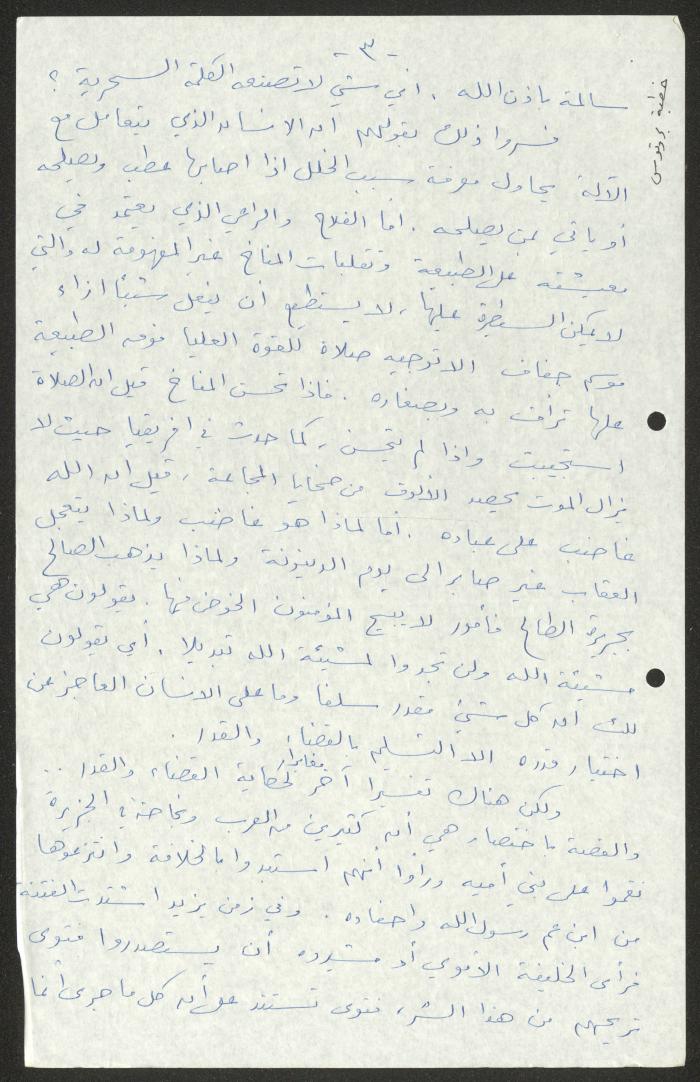 - ٣ -
سالمة باذن الله . اي شي لا تصنعه الكلمة السحرية ؟
فسروا ذلك بقولهم ان الانسان الذي يتعامل مع
الآلة يحاول معرفة سبب الخلل اذا اصابها عطب ويصلحه
أو يأتي بمن يصلحه . اما الفلاح والراعي الذي يعتمد في
معيشته على الطبيعة وتقلبات المناخ غير المفهومة له والتي
لا يمكن السيطرة عليها ، لا يستطيع أن يفعل شيئا ازاء
موسم جفاف الا توجيه صلاة للقوة العليا فوق الطبيعة
علها ترأف به وبصغاره . فاذا تحسن المناخ قيل ان الصلاة
استجيبت واذا لم يتحسن ، كما حدث في افريقيا حيث لا
يزال الموت يحصد الألوف من ضحايا المجاعة ، قيل ان الله
غاضب على عباده . اما لماذا هو غاضب ولماذا يتعجل
العقاب غير صابر الى يوم الدينونة ولماذا يذهب الصالح
بجريرة الطالح فأمور لا يبيح المؤمنون الخوض فيها . يقولون هي
مشيئة الله ولن تجدوا لمشيئة الله تبديلا . أي يقولون
لك ان كل شيئ مقدر سلفا وما على الانسان العاجز عن
اختيار قدره الا التسليم بالقضاء والقدر .
ولكن هناك تفسيرا آخر مغايرا لحكاية القضاء والقدر ..
والقصة باختصار هي أن كثيرين من العرب وبخاصة في الجزيرة
نقموا على بني أميه ورأوا أنهم استبدوا بالخلافة وانتزعوها
من ابن عم رسول الله واحفاده . وفي زمن يزيد اشتدت الفتنة
فرأى الخليفة الأموي أو مشيروه أن يستصدروا فتوى
تريحهم من هذا الشر ، فتوى تستند على أن كل ما جرى أنما
خطبة برنوس